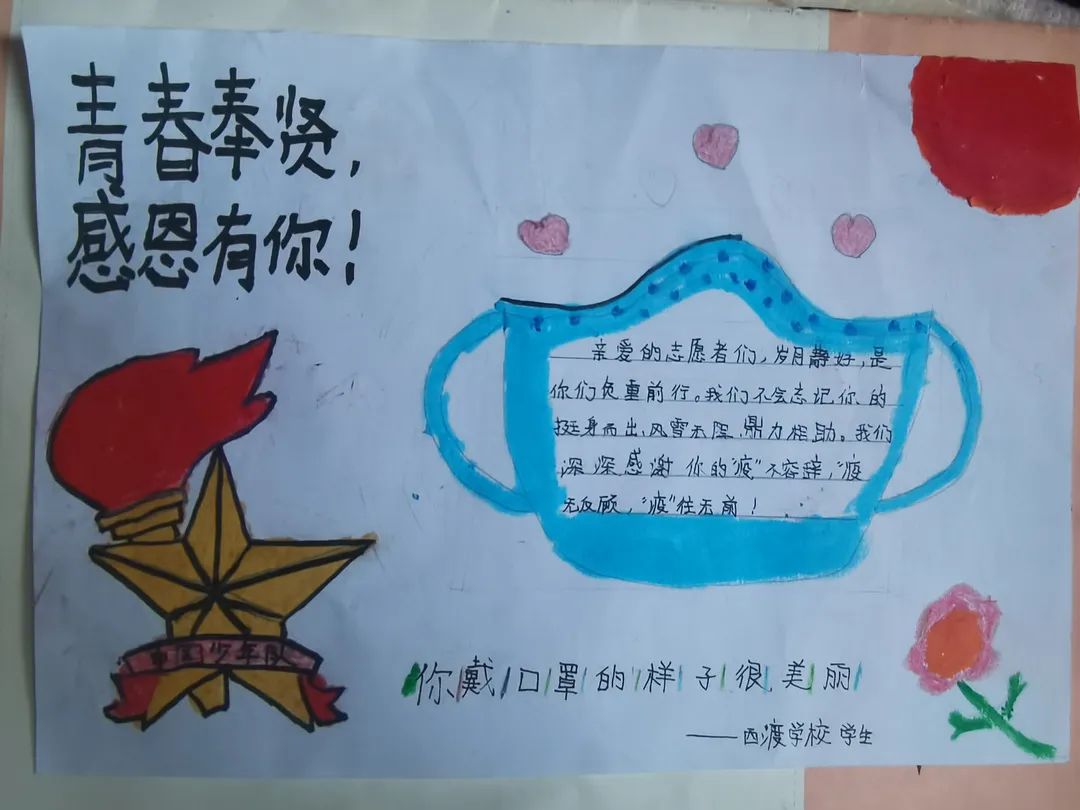 青春奉贤,
感恩有你!
亲爱的志愿者们,岁月静好,是
你们负重前行。我们不会忘记你的
挺身而出,风雪无阻,鼎力相助。我们
深深感谢 你的"疫"不容辞,"疫
无反顾,"疫"往无前!
中国少年队
你戴口罩的样子很美丽
——西渡学校 学生